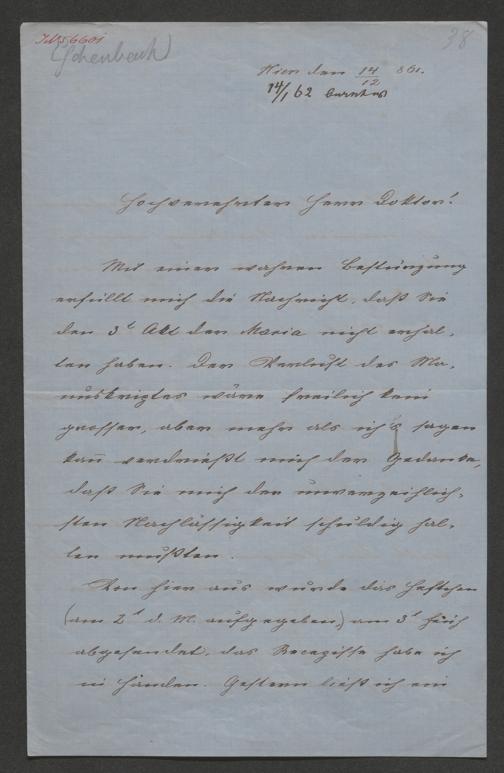 38
(Eschenbach)
Wien den 14/12 861.
14/1 62 beantw
Hochverehrter Herr Doktor!
Mit einer wahren Bestürzung
erfüllt mich die Nachricht, daß Sie
den 3t Akt der Maria nicht erhal-
ten haben. Der Verlust des Ma-
nuskriptes wäre freilich kein
grosser, aber mehr als ich sagen
kan̄ verdrießt mich der Gedanke,
daß Sie mich der unverzeihlich-
sten Nachlässigkeit schuldig hal-
ten mußten.
Von hier aus wurde das Heftchen
(am 2t d. M. aufgegeben,) am 3t früh
abgesendet, das Recepisse habe ich
in Händen. Gestern ließ ich ein